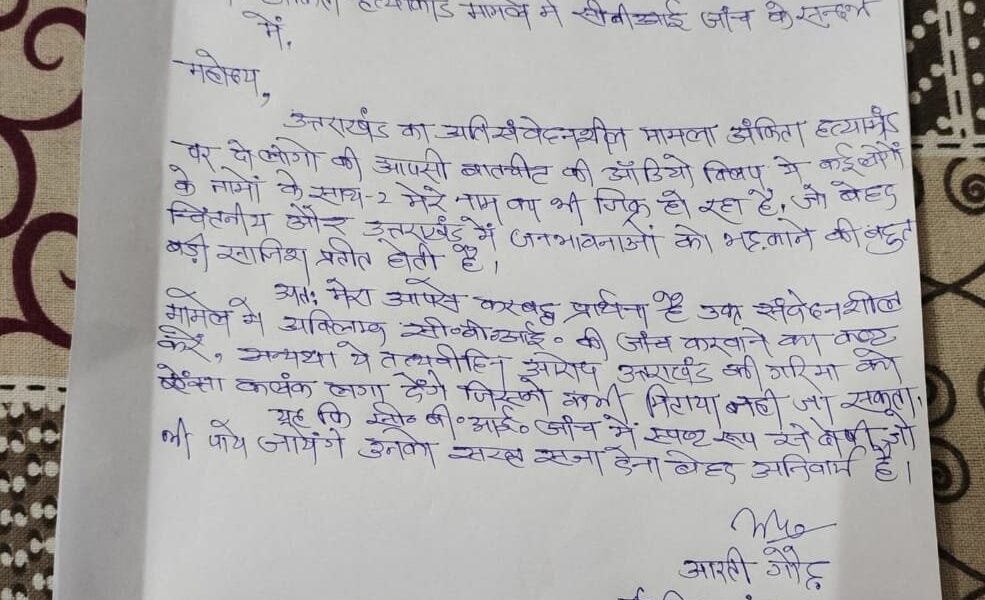 अंकिता हत्याकांड मामले में सीबीआई जांच के सन्दर्भ
में,
महोदय,
उत्तराखंड का अतिसंवेदनशील मामला अंकिता हत्याकांड
पर दो लोगो की आपसी बातचीत की ऑडियो क्लिप मे कई लोगों
के नामों के साथ-2 मेरे नाम का भी जिक्र हो रहा है, जो बेहद
चिंतनीय और उत्तराखंड में जनभावनाओं को भड़काने की बहुत
बड़ी साजिश प्रतीत होती है।
अतः मेरा आपसे करबद्ध प्रार्थना है उक्त संवेदनशील
मामले में अविलम्ब सी०बी०आई० की जांच करवाने का कष्ट
करें, अन्यथा ये तथ्यविहिन आरोप उत्तराखंड की गरिमा को
ऐसा कलंक लगा देंगे जिसको कभी मिटाया नहीं जा सकता।
यह कि सी० बी०आई० जांच में स्पष्ट रूप से दोषी जो
भी पाये जायेंगे उनको सख्त सजा देना बेहद अनिवार्य है।
आरती गौड़